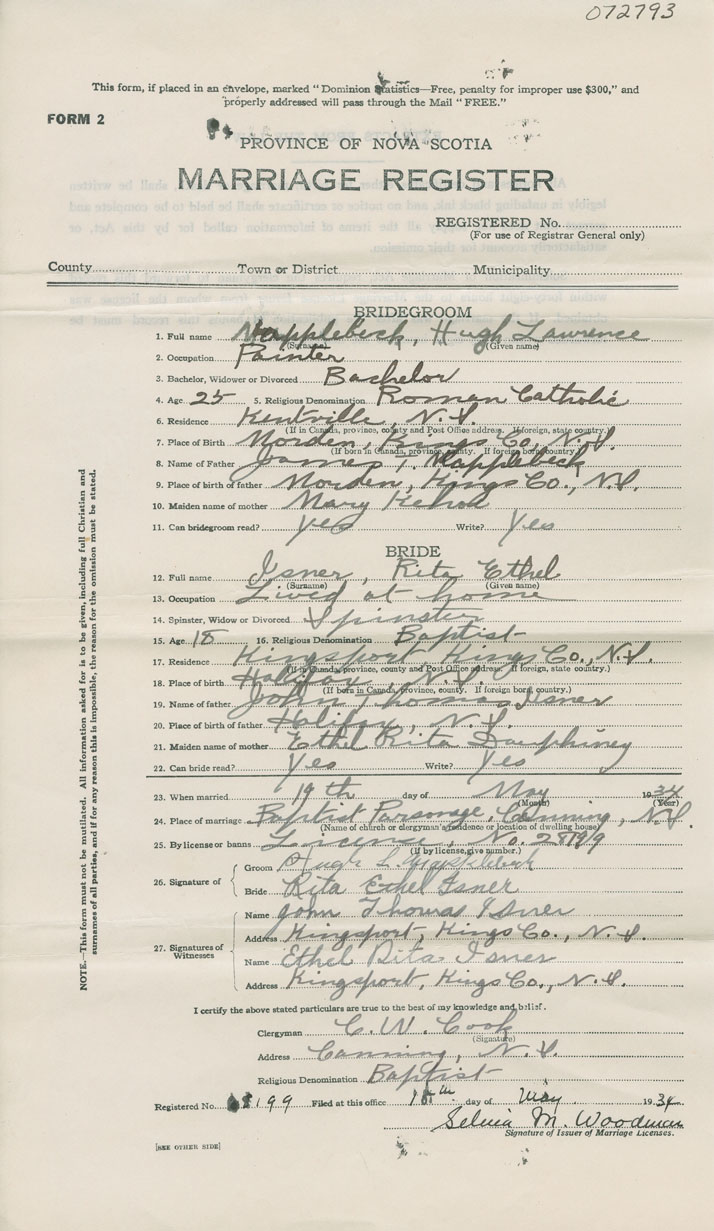 072793
This form, if placed in an envelope, marked "Dominion Statistics—Free, penalty for improper use $300," and
properly addressed will pass through the Mail "FREE."
FORM 2
PROVINCE OF NOVA SCOTIA
MARRIAGE REGISTER
REGISTERED No.
(For use of Registrar General only)
County Town or District Municipality
BRIDEGROOM
1. Full name Mapplebeck, Hugh Lawrence
(Surname) (Given name)
2. Occupation Painter
3. Bachelor, Widower or Divorced Bachelor
4. Age 25 5. Religious Denomination Roman Catholic
6. Residence Kentville, N.S.
(If in Canada, province, county and Post Office address. If foreign, state country.)
7. Place of Birth Morden, Kings Co., N.S.
(If born in Canada, province, county. If foreign born, country.)
8. Name of Father James T. Mapplebeck
9. Place of birth of father Morden, Kings Co., N.S.
10. Maiden name of mother Mary Kehoe
11. Can bridegroom read? yes Write? Yes
BRIDE
12. Full name Isner, Rita Ethel
(Surname) (Given name)
13. Occupation Lived at home
14. Spinster, Widow or Divorced Spinster
15. Age 18 16. Religious Denomination Baptist
17. Residence Kingsport, Kings Co., N.S.
(If in Canada, province, county and Post Office address. If foreign, state country.)
18. Place of birth Halifax, N.S.
(If born in Canada, province, county. If foreign born, country.)
19. Name of father John Thomas Isner
20. Place of birth of father Halifax, N.S.
21. Maiden name of mother Ethel Rita Dauphiney
22. Can bride read? Yes Write? Yes
23. When married 19th day of May 1934
(Month) (Year)
24. Place of marriage Baptist Parsonage, Canning, N.S.
(Name of church or clergyman's residence or location of dwelling house)
25. By license or banns License, No. 28199
(If by license, give number.)
26. Signature of
Groom Hugh L. Mapplebeck
Bride Rita Ethel Isner
27. Signatures of Witnesses
Name John Thomas Isner
Address Kingsport, Kings Co., N.S.
Name Ethel Rita Isner
Address Kingsport, Kings Co., N.S.
I certify the above stated particulars are true to the best of my knowledge and belief.
Clergyman C. W. Cook
(Signature)
Address Canning, N.S.
Religious Denomination Baptist
Registered No. 199 Filed at this office 18th day of May 1934
Selvia M. Woodman
Signature of Issuer of Marriage Licenses.
[SEE OTHER SIDE]
NOTE.—This form must not be mutilated. All information asked for is to be given, including full Christian and
surnames of all parties, and if for any reason this is impossible, the reason for the omission must be stated.